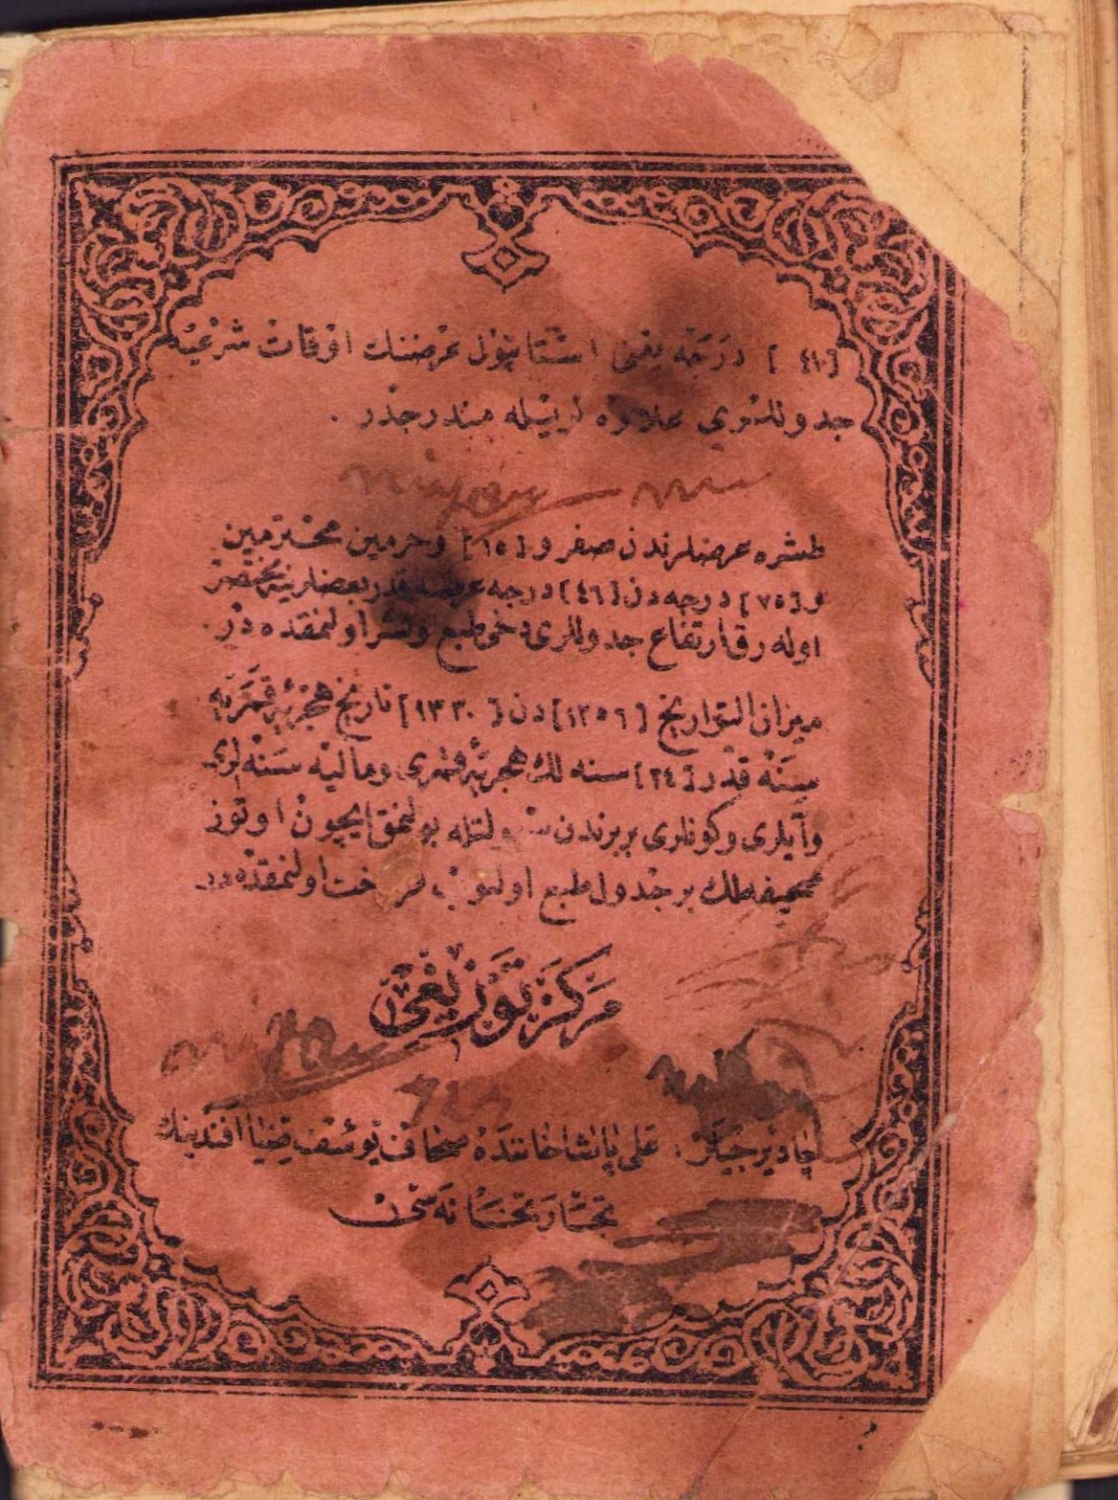 [٤١] درجه یعنی استانبول عرضنك اوقات شرعیه
جدوللری علاوه ایتیله مندرجدر .
طشره عرضلرندن صفر و [١٥] وحرمین محترمین
و [٧٥] درجه دن [٤٦] درجه عرضنه قدر بعضلرینه مختصر
اوله رق ارتفاع جدوللری دخی طبع ونشر اولنمقده در .
میزان التواریخ [١٢٥٦] دن [١٣٣٠] تاریخ هجریهٔ قمریه
سنه قدر [٢٤] سنه لك هجریهٔ قمری ومالیه سنه لری
وآیلری وکونلری بربرندن سهولتله بولنمق ایچون اوتوز
صحیفه لك بر جدول طبع اولنوب فروخت اولنمقده در
مرکز توزیعی
چادیرجیلر : علی پاشا خاننده صحاف یوسف ضیا افندینك
تجارتخانه سی